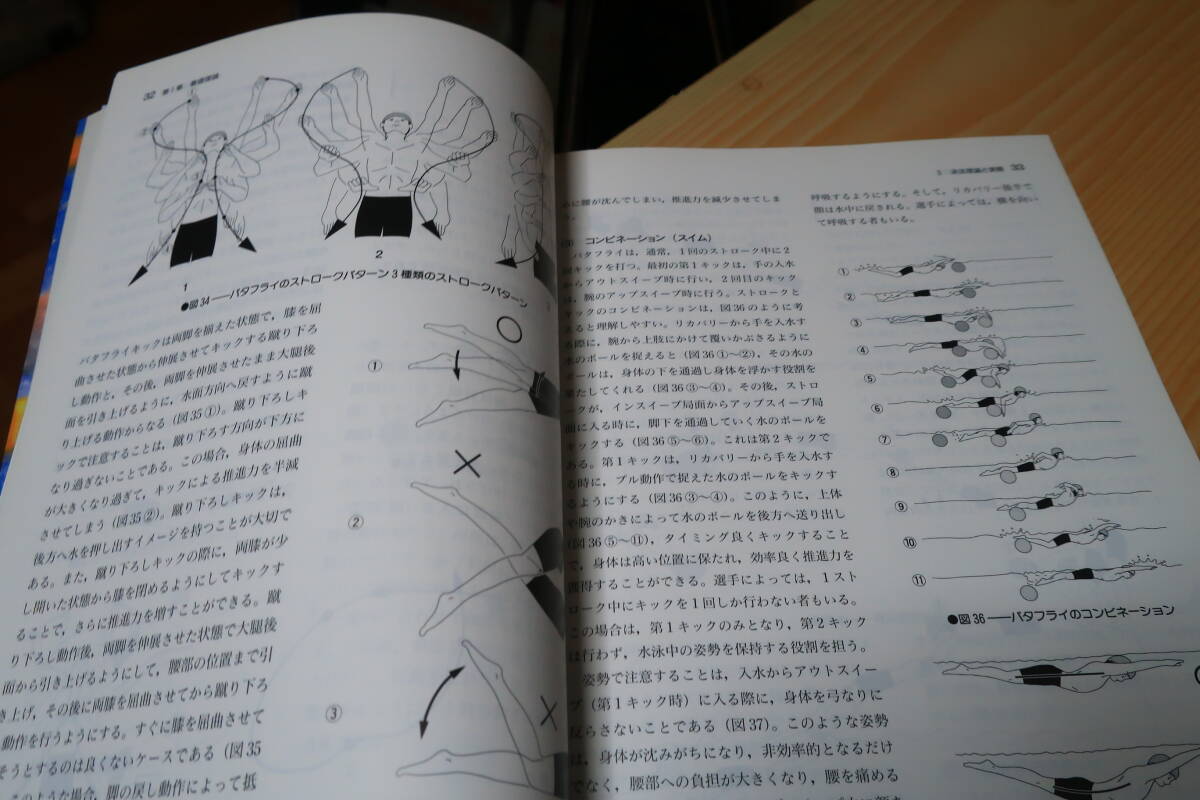 32 第1章
1
2
●図34──バタフライのストロークパターン 3種類のストロークパターン
バタフライキックは両脚を揃えた状態で，膝を屈
曲させた状態から伸展させてキックする蹴り下ろ
し動作と，その後，両脚を伸展させたまま大腿後
面を引き上げるように，水面方向へ戻すように蹴
り上げる動作からなる（図35①）。蹴り下ろしキ
ックで注意することは，蹴り下ろす方向が下方に
なり過ぎないことである。この場合，身体の屈曲
が大きくなり過ぎて，キックによる推進力を半減
させてしまう（図35②）。蹴り下ろしキックは，
後方へ水を押し出すイメージを持つことが大切で
ある。また，蹴り下ろしキックの際に，両膝が少
し開いた状態から膝を閉めるようにしてキックす
ることで，さらに推進力を増すことができる。蹴
り下ろし動作後，両脚を伸展させた状態で大腿後
面から引き上げるようにして，腰部の位置まで引
き上げ，その後に両膝を屈曲させてから蹴り下ろ
動作を行うようにする。すぐに膝を屈曲させて
そうとするのは良くないケースである（図35
このような場合，脚の戻し動作によって抵
①
②
③
33
めに腰が沈んでしまい，推進力を減少させてしま
コンビネーション（スイム）
バタフライは，通常，1回のストローク中に2
キックを打つ。最初の第1キックは，手の入水
からアウトスイープ時に行い，2回目のキック
は，腕のアップスイープ時に行う。ストロークと
キックのコンビネーションは，図36のように考
えると理解しやすい。リカバリーから手を入水す
る際に，腕から上肢にかけて覆いかぶさるように
水のボールを捉えると（図36①～②），その水の
ボールは，身体の下を通過し身体を浮かす役割を
果たしてくれる（図36③～④）。その後，ストロ
ークが，インスイープ局面からアップスイープ局
面に入る時に，脚下を通過していく水のボールを
キックする（図36⑤～⑥）。これは第2キックで
ある。第1キックは，リカバリーから手を入水す
る時に，プル動作で捉えた水のボールをキックす
るようにする（図36③～④）。このように，上体
や腕のかきによって水のボールを後方へ送り出し
（図36⑤～⑪），タイミング良くキックすること
で，身体は高い位置に保たれ，効率良く推進力を
獲得することができる。選手によっては，1スト
ローク中にキックを1回しか行わない者もいる。
この場合は，第1キックのみとなり，第2キック
は行わず，水泳中の姿勢を保持する役割を担う。
姿勢で注意することは，入水からアウトスイー
プ（第1キック時）に入る際に，身体を弓なりに
反らさないことである（図37）。このような姿勢
は，身体が沈みがちになり，非効率的となるだけ
でなく，腰部への負担が大きくなり，腰を痛める
呼吸するようにする。そして，リカバリー後半で
顔は水中に戻される。選手によっては，横を向い
て呼吸する者もいる。
①
②
③
④
⑤
⑥
⑦
⑧
⑨
⑩
⑪
●図36──バタフライのコンビネーション